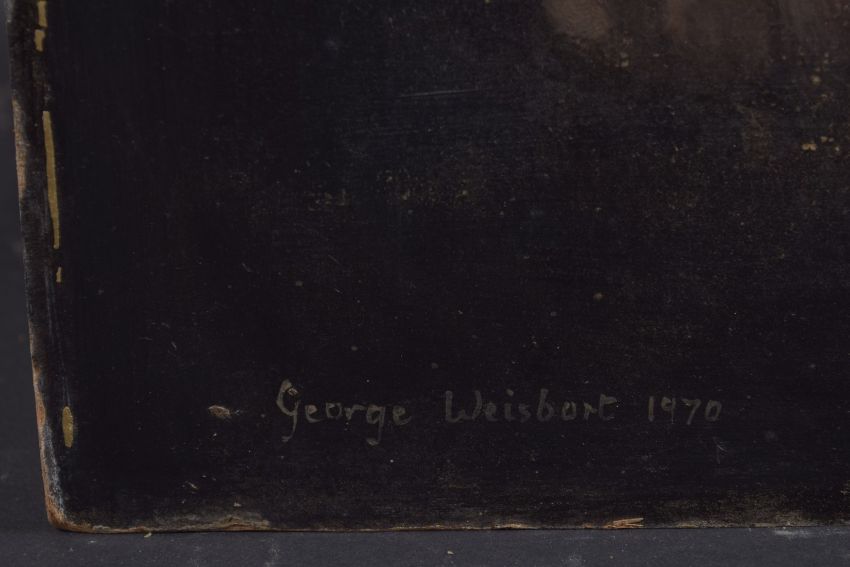 George Weisbort 1970